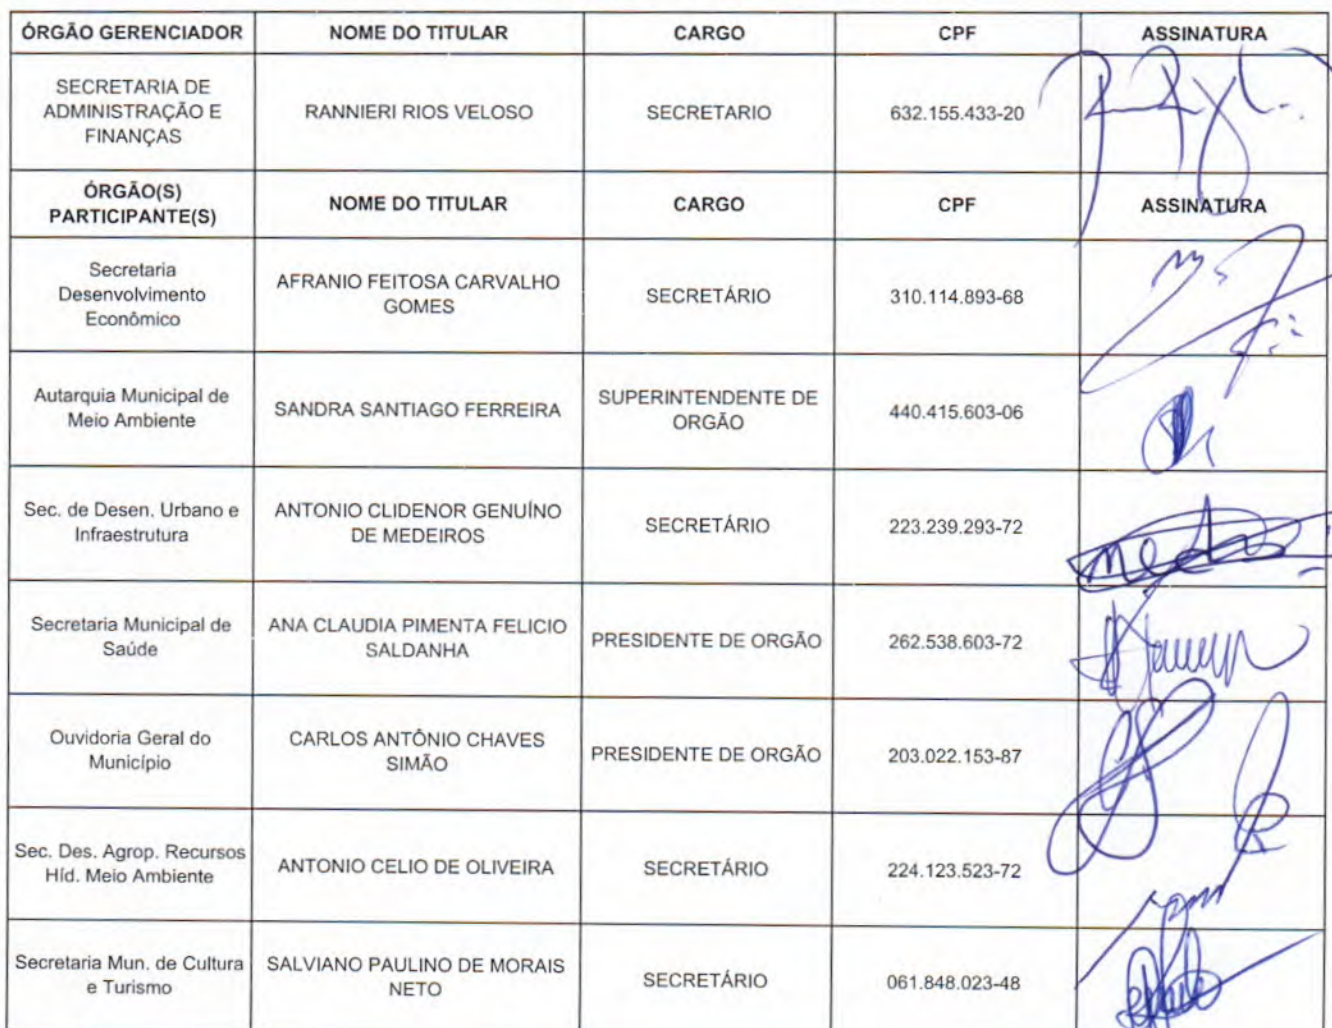 ÓRGÃO GERENCIADOR NOME DO TITULAR CARGO CPF ASSINATURA
SECRETARIA DE
ADMINISTRAÇÃO E
FINANÇAS
RANNIERI RIOS VELOSO SECRETARIO 632.155.433-20
ÓRGÃO(S)
PARTICIPANTE(S)
NOME DO TITULAR CARGO CPF ASSINATURA
Secretaria
Desenvolvimento
Econômico
AFRANIO FEITOSA CARVALHO
GOMES
SECRETÁRIO 310.114.893-68
Autarquia Municipal de
Meio Ambiente
SANDRA SANTIAGO FERREIRA
SUPERINTENDENTE DE
ORGÃO
440.415.603-06
Sec. de Desen. Urbano e
Infraestrutura
ANTONIO CLIDENOR GENUÍNO
DE MEDEIROS
SECRETÁRIO 223.239.293-72
Secretaria Municipal de
Saúde
ANA CLAUDIA PIMENTA FELICIO
SALDANHA
PRESIDENTE DE ORGÃO 262.538.603-72
Ouvidoria Geral do
Município
CARLOS ANTÔNIO CHAVES
SIMÃO
PRESIDENTE DE ORGÃO 203.022.153-87
Sec. Des. Agrop. Recursos
Híd. Meio Ambiente
ANTONIO CELIO DE OLIVEIRA SECRETÁRIO 224.123.523-72
Secretaria Mun. de Cultura
e Turismo
SALVIANO PAULINO DE MORAIS
NETO
SECRETÁRIO 061.848.023-48